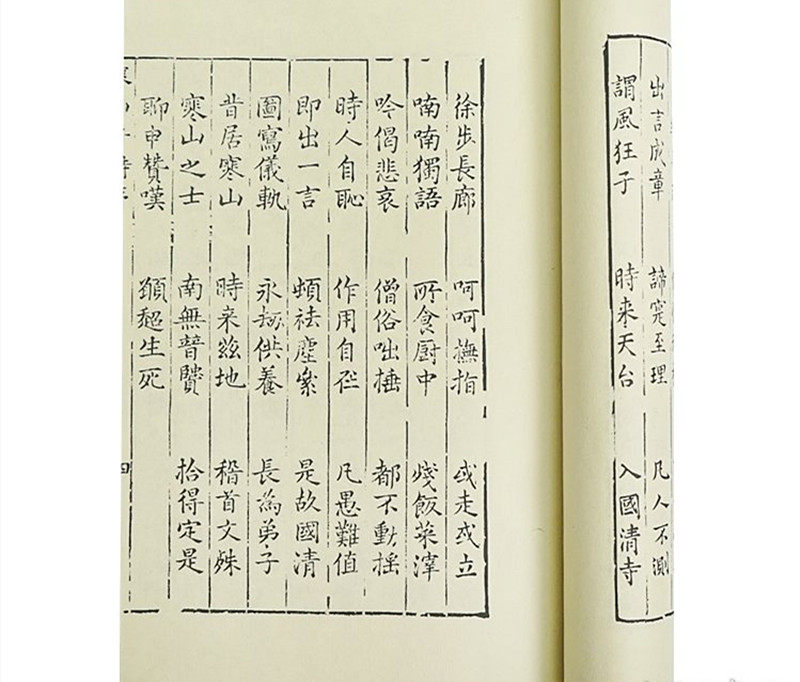 出言成章 諦寔至理 凡人不測
謂風狂子 時来天台 入國清寺
徐步長廊 呵呵撫指 或走或立
喃喃獨語 所食厨中 殘飯菜滓
吟偈悲哀 僧俗咄捶 都不動搖
時人自恥 作用自在 凡愚難值
即出一言 頓祛塵累 是故國清
圖寫儀軌 永劫供養 長為弟子
昔居寒山 時来兹地 稽首文殊
寒山之士 南無普賢 拾得定是
聊申贊嘆 願超生死